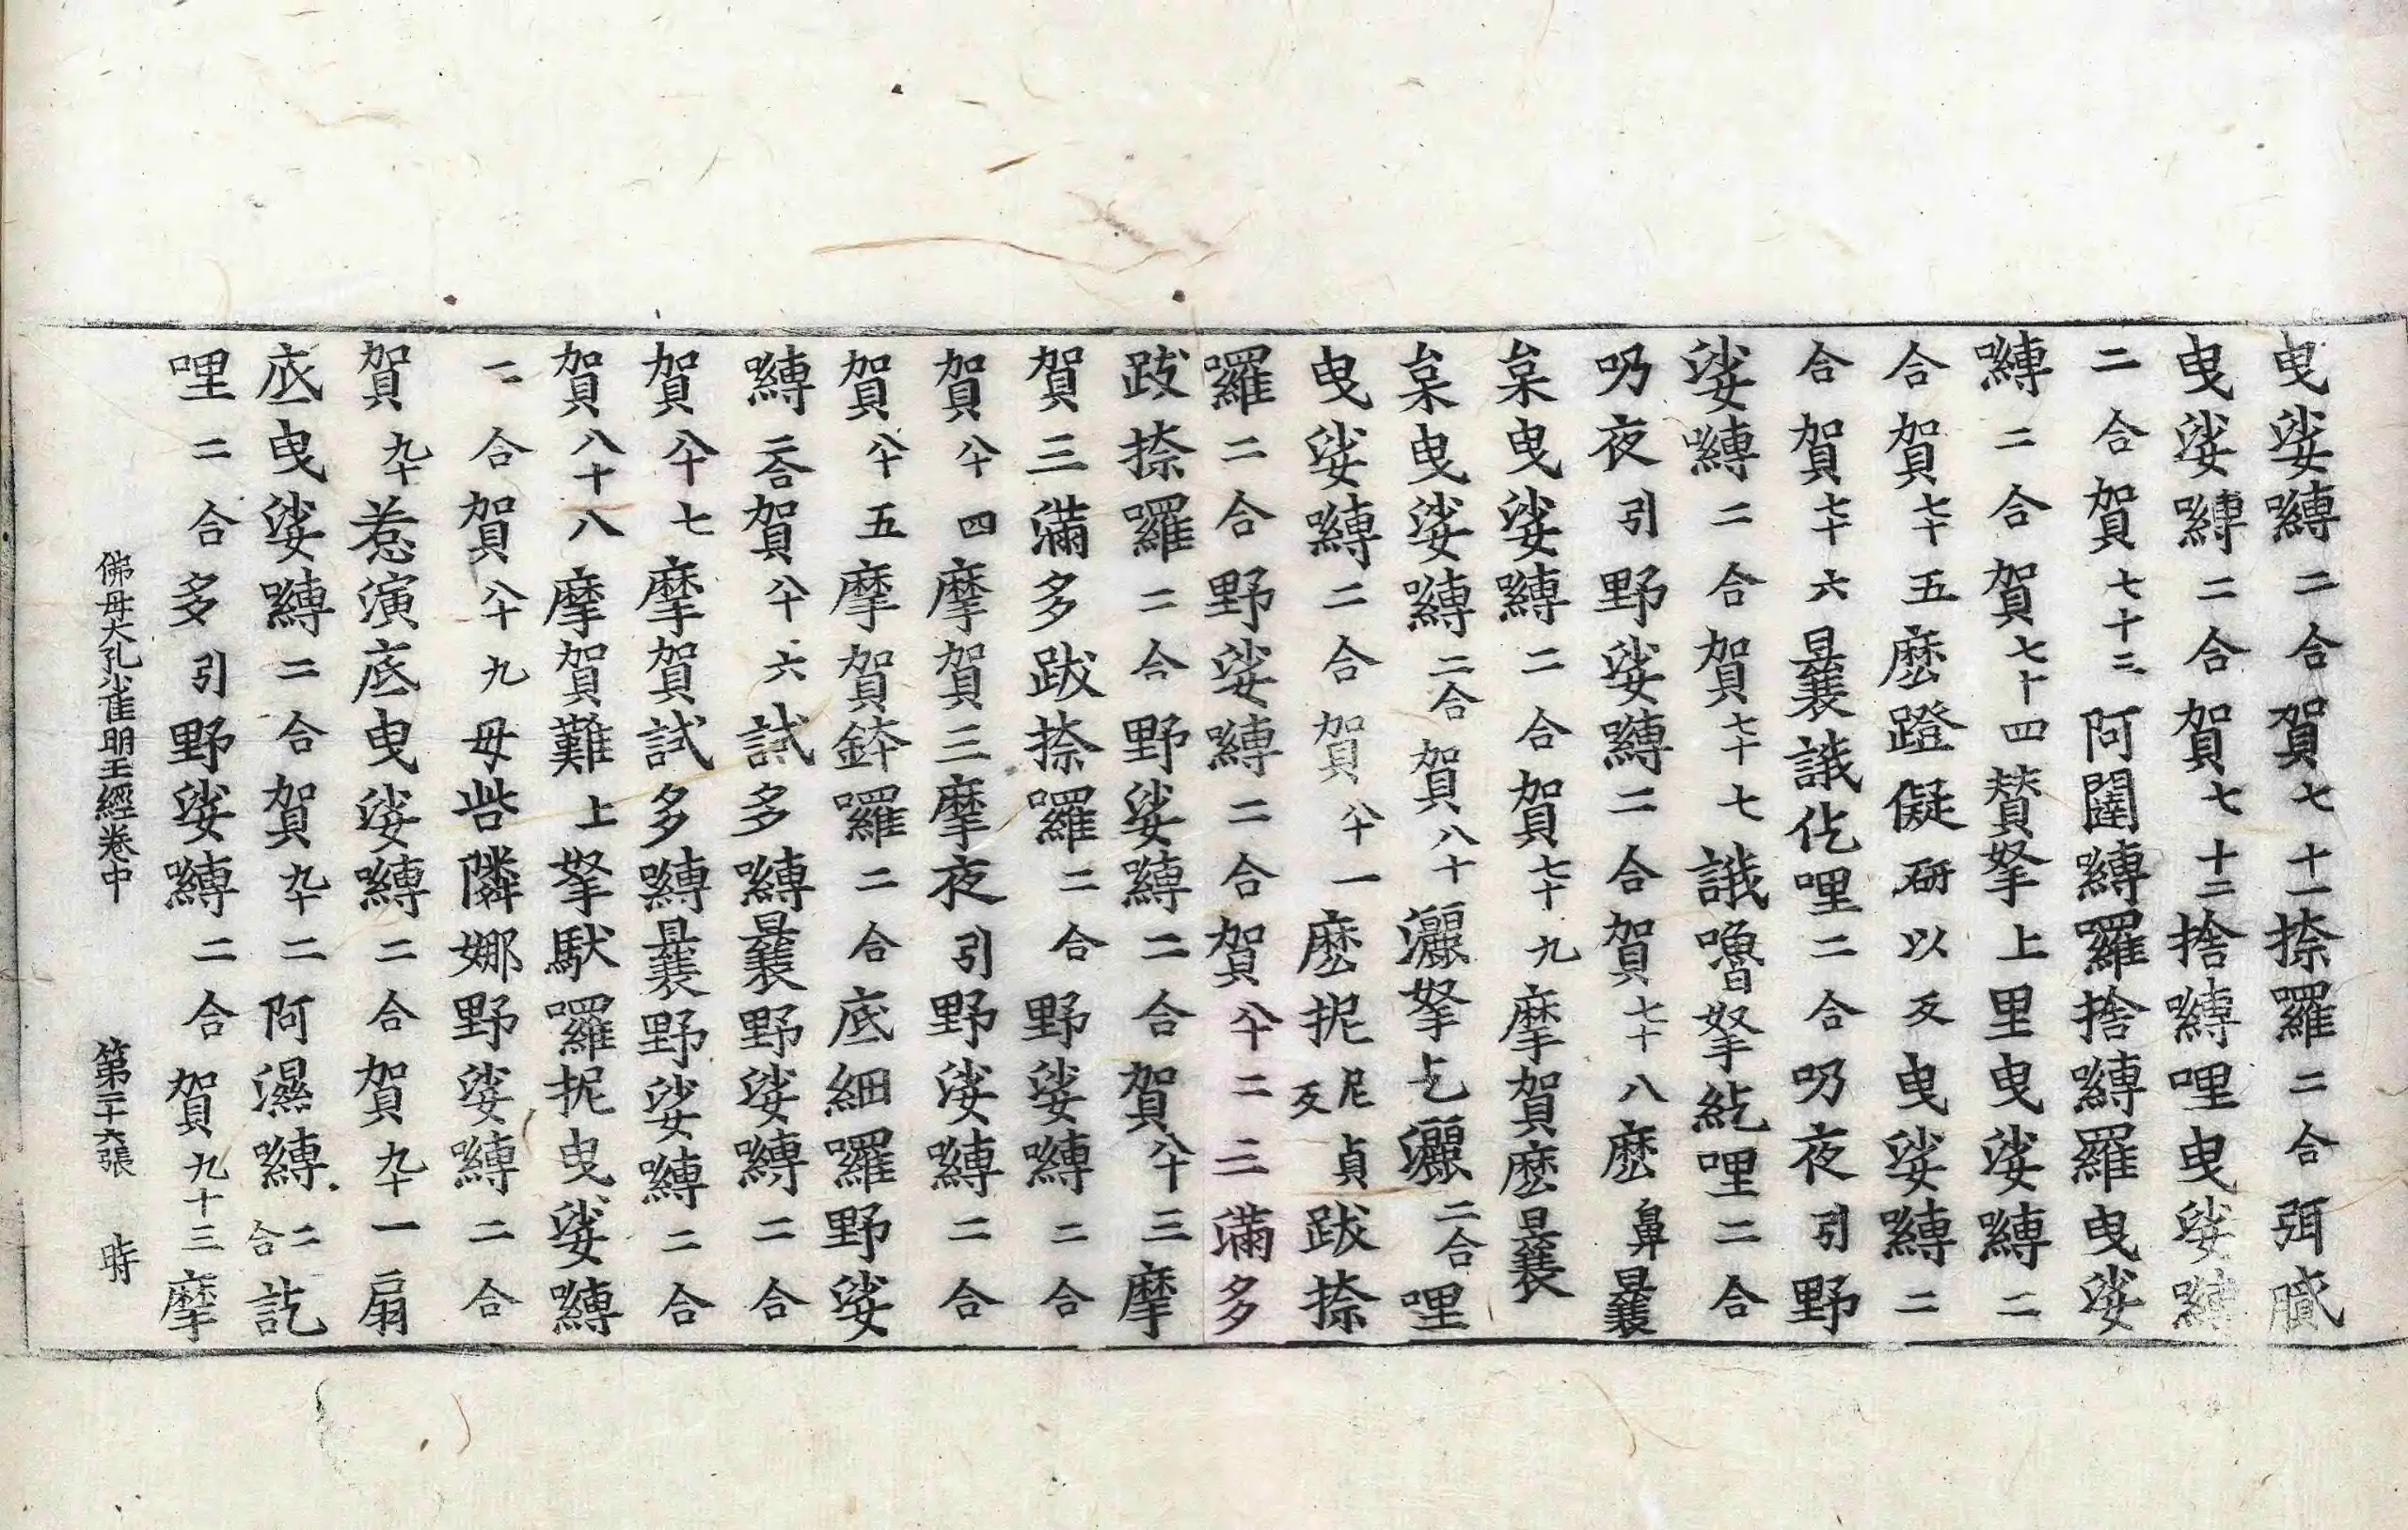 曳娑嚩二合賀七十一捺囉二合弭膩
曳娑嚩二合賀七十二捨嚩哩曳娑嚩
二合賀七十三阿闥嚩囉捨嚩囉曳娑
嚩二合賀七十四賛拏上里曳娑嚩二
合賀七十五麽蹬儗研以反曳娑嚩二
合賀七十六曩誐仡哩二合乃夜引野
娑嚩二合賀七十七誐嚕拏紇哩二合
乃夜引野娑嚩二合賀七十八麽鼻曩
枲曳娑嚩二合賀七十九摩賀麽曩
枲曳娑嚩二合賀八十灑拏乞灑二合哩
曳娑嚩二合賀八十一麽抳尼貞反跋捺
囉二合野娑嚩二合賀八十二三滿多
跋捺囉二合野娑嚩二合賀八十三摩
賀三滿多跋捺囉二合野娑嚩二合
賀八十四摩賀三摩夜引野娑嚩二合
賀八十五摩賀鉢囉二合底細囉野娑
嚩二合賀八十六試多嚩曩野娑嚩二合
賀八十七摩賀試多嚩曩野娑嚩二合
賀八十八摩賀難上拏馱囉抳曳娑嚩
二合賀八十九母呰隣娜野娑嚩二合
賀九十惹演底曳娑嚩二合賀九十一扇
底曳娑嚩二合賀九十二阿濕嚩二合訖
哩二合多引野娑嚩二合賀九十三摩
佛母大孔雀明王經卷中 第二十六張 時